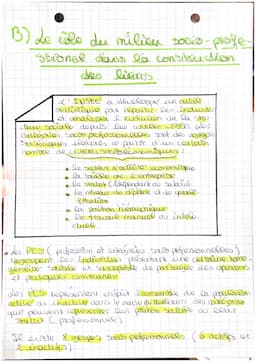 B) Le rôle du milieu socio-profe-
ssionnel dans la construction
des liens
L'INSEE a développé un outil
statistique pour répartir les individus
et analyser l'évolution de la stru-
cture sociale depuis les années
catégories socioprofessionnelles sont des
statistiques élaborés à partir d'un certain
nombre de critères socio-économiques :
• Le secteur d'activité économique
• La taille de l'entreprise
• Le statut (indépendant ou salarié)
• Le niveau de diplôme et de quali-
fication
• La position hiérarchique
• Le travail manuel ou intelle-
ctuel
• Les PCS (professions et catégories socio professionnelles)
regroupent les individus présentant une certaine homo-
généité sociale et susceptible de partager des opinions
et pratiques communes
Les PCS représentent l'ensemble de la population
active ou inactive dans le
que peuvent représenter leur position sociale ou leur
statut (professionnel)
Il existe 8 groupes socio professionnels (6 actifs et
2 inactifs)